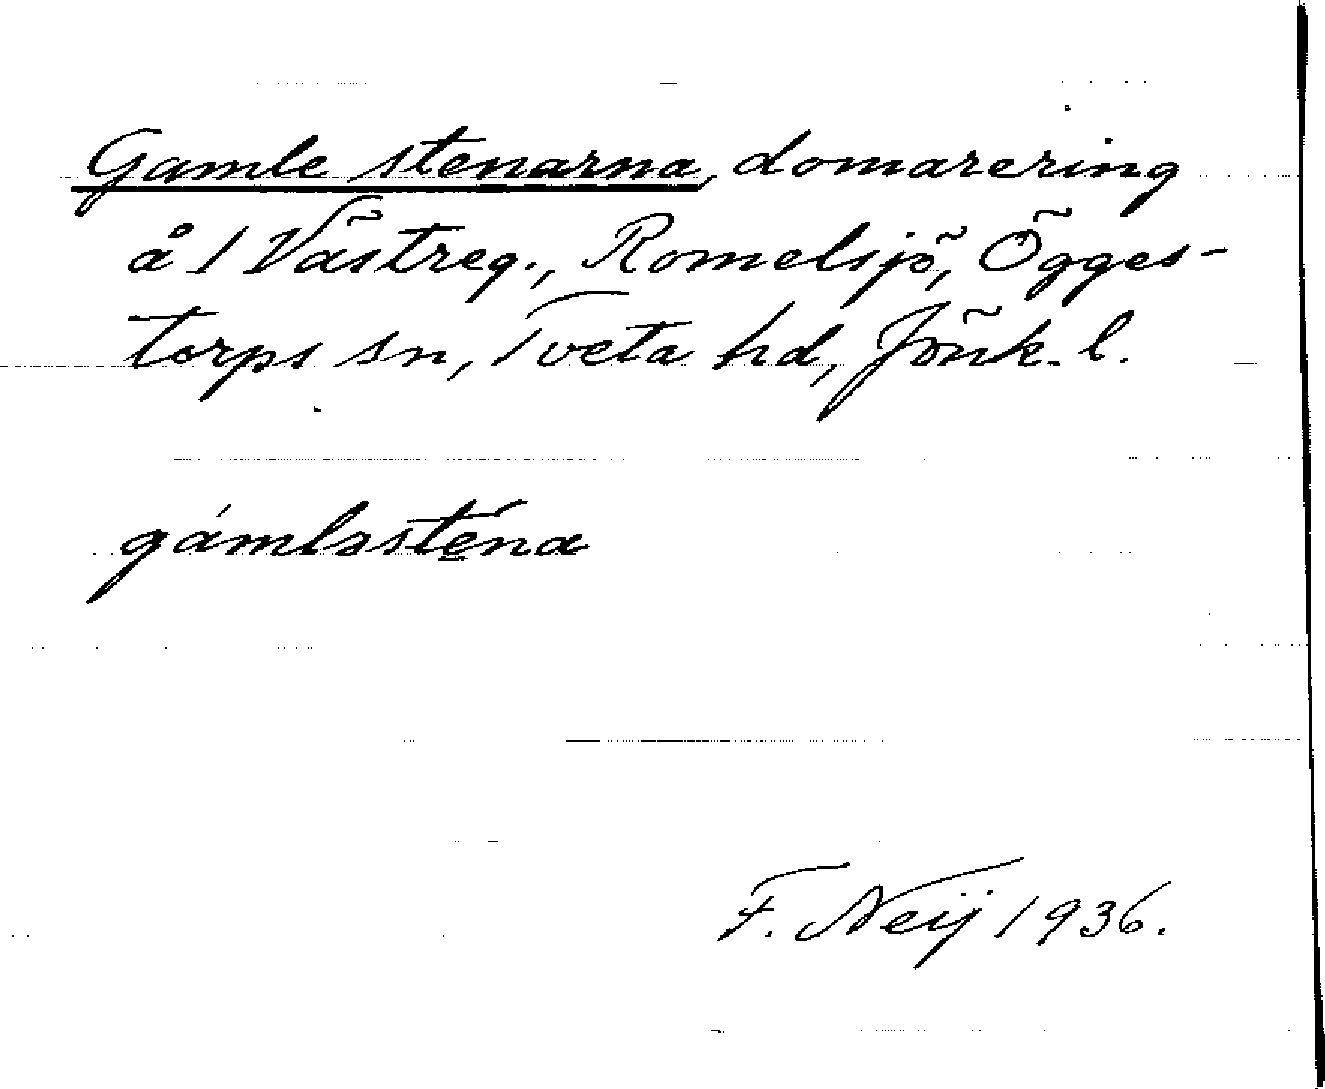 Gamle stenarna, domarering
å 1 Västreg., Romelsjö, Ögges-
torps sn, Tveta hd, Jönk. l.
gámlasténa
F. Neij 1936.